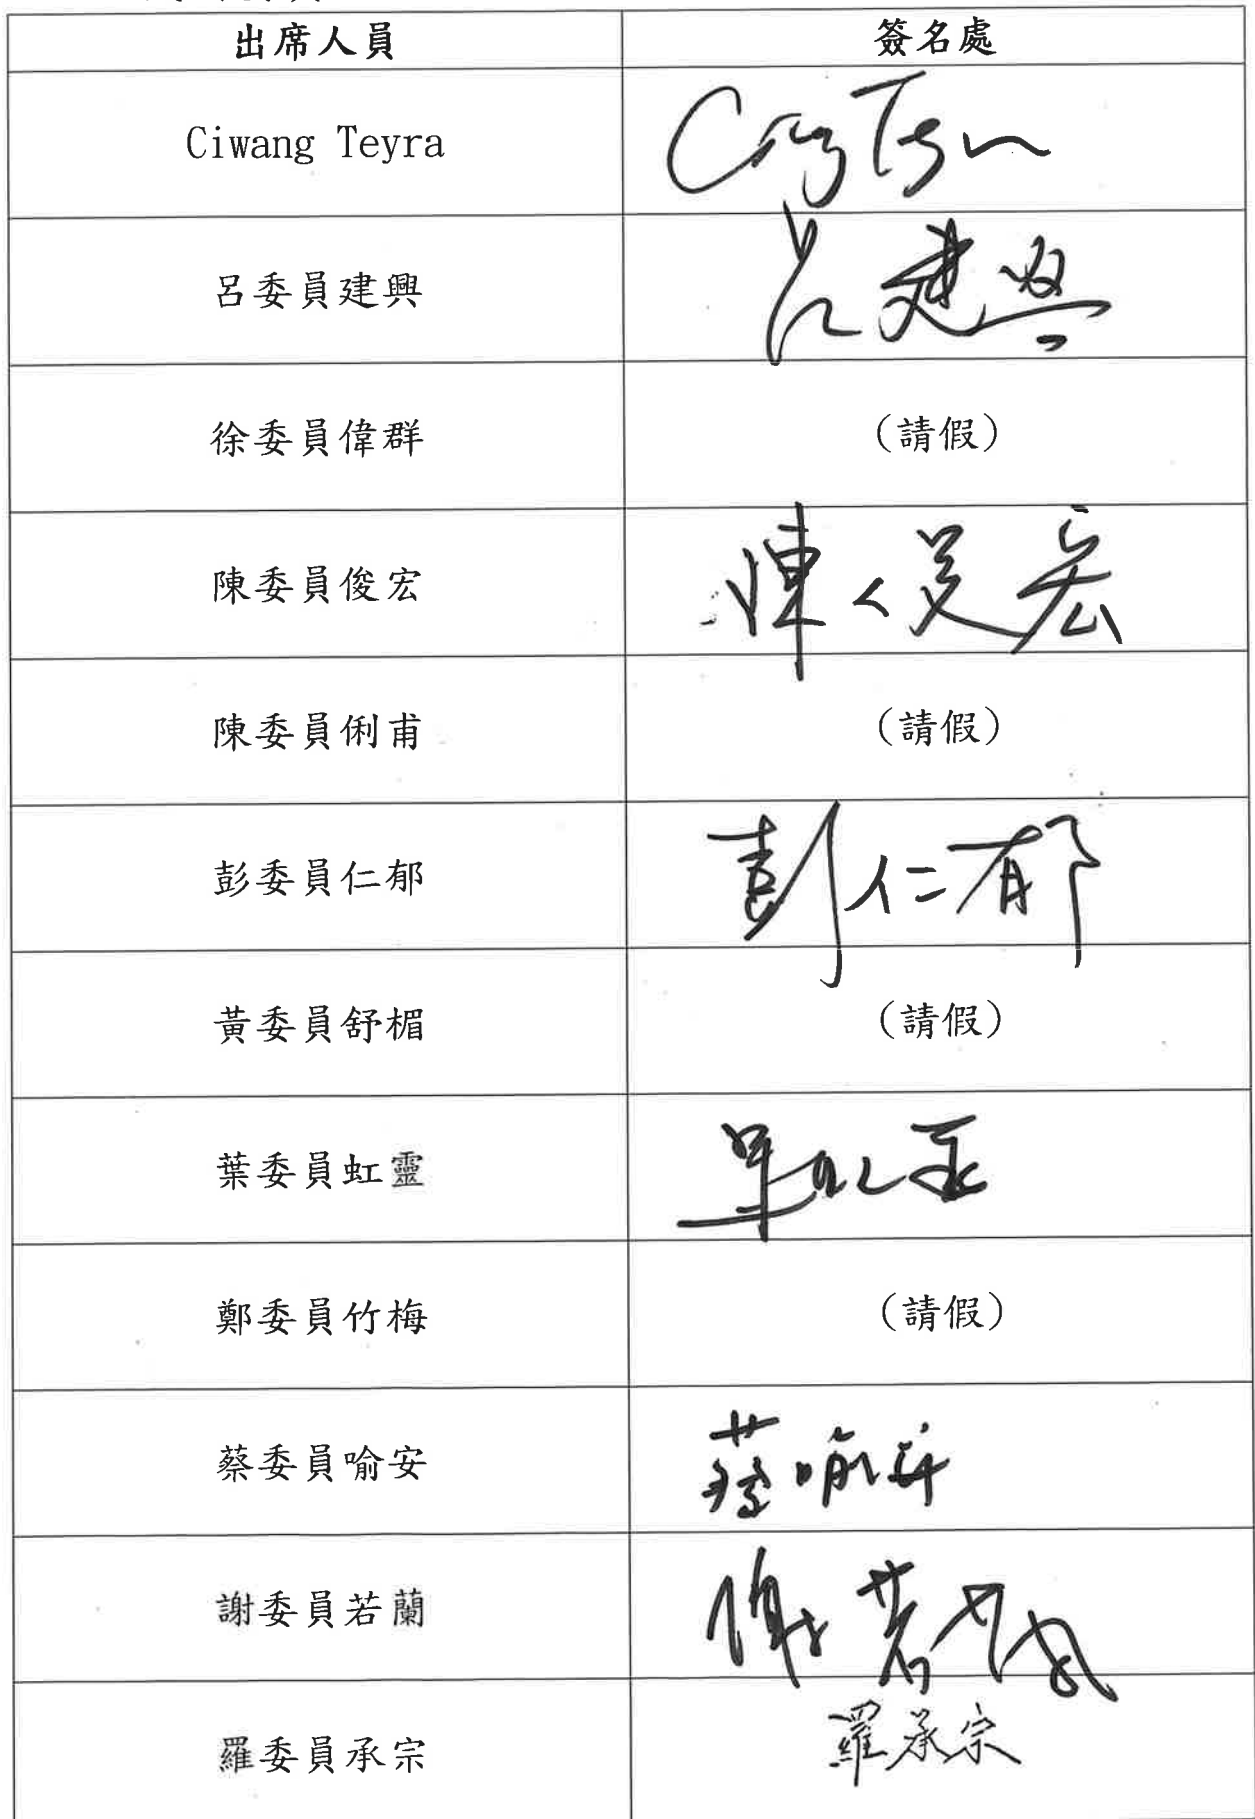 出席人員 簽名處
Ciwang Teyra
呂委員建興 呂建興
徐委員偉群 (請假)
陳委員俊宏 陳俊宏
陳委員俐甫 (請假)
彭委員仁郁 彭仁郁
黃委員舒楣 (請假)
葉委員虹靈
鄭委員竹梅 (請假)
蔡委員喻安 蔡喻安
謝委員若蘭 謝若蘭
羅委員承宗 羅承宗